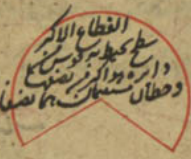 القطاع الاكبر
سطح يحيط به قوس من
دايرة هو اكبر من نصفها
وخطان مستقيمان هما نصفا